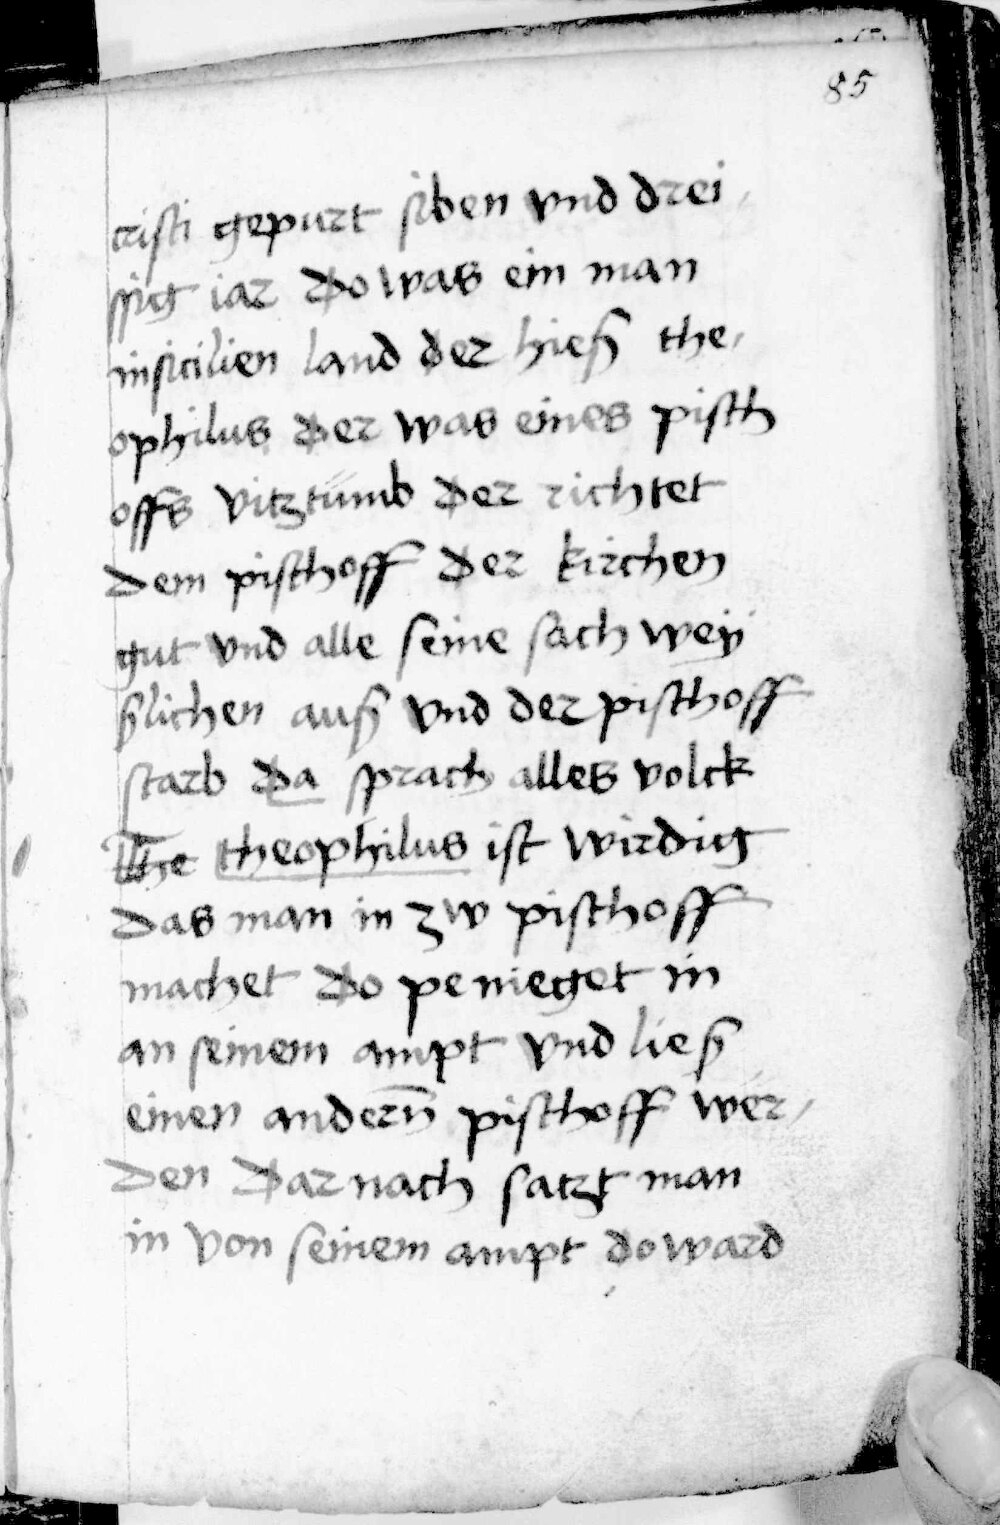 85
cristi gepurt siben vnd drei,
ssig iar Do was ein man
in sicilien land der hieß the,
ophilus der was eines pisch
offs vitztumb der richtet
dem pischoff der kirchen
gut vnd alle seine sach weÿ
ßlichen auß vnd der pischoff
starb da sprach alles volck
The theophilus ist wirdig
das man in zw pischoff
machet Do penieget in
an seinem ampt vnd ließ
einen andern̄ pischoff wer,
den Dar nach satzt man
in von seinem ampt do ward